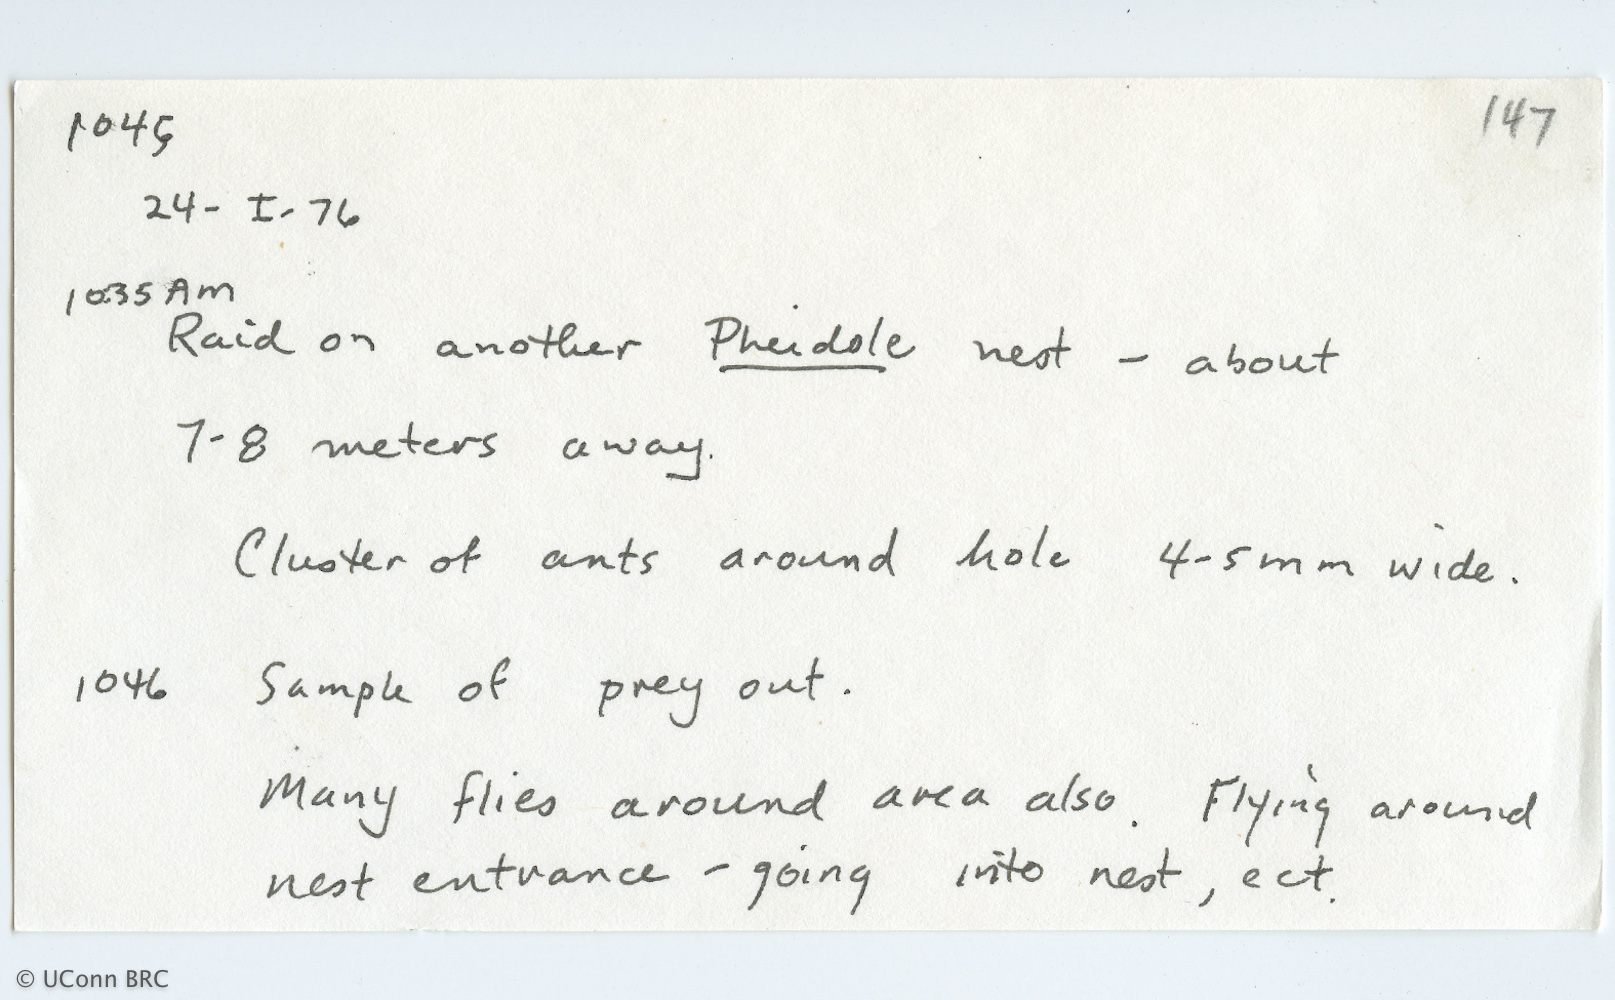 1045
147
24-I-76
1035 Am
Raid on another Pheidole nest - about
7-8 meters away.
Cluster of ants around hole 4-5mm wide.
1046 Sample of prey out.
Many flies around area also. Flying around
nest entrance - going into nest, ect.
© UConn BRC